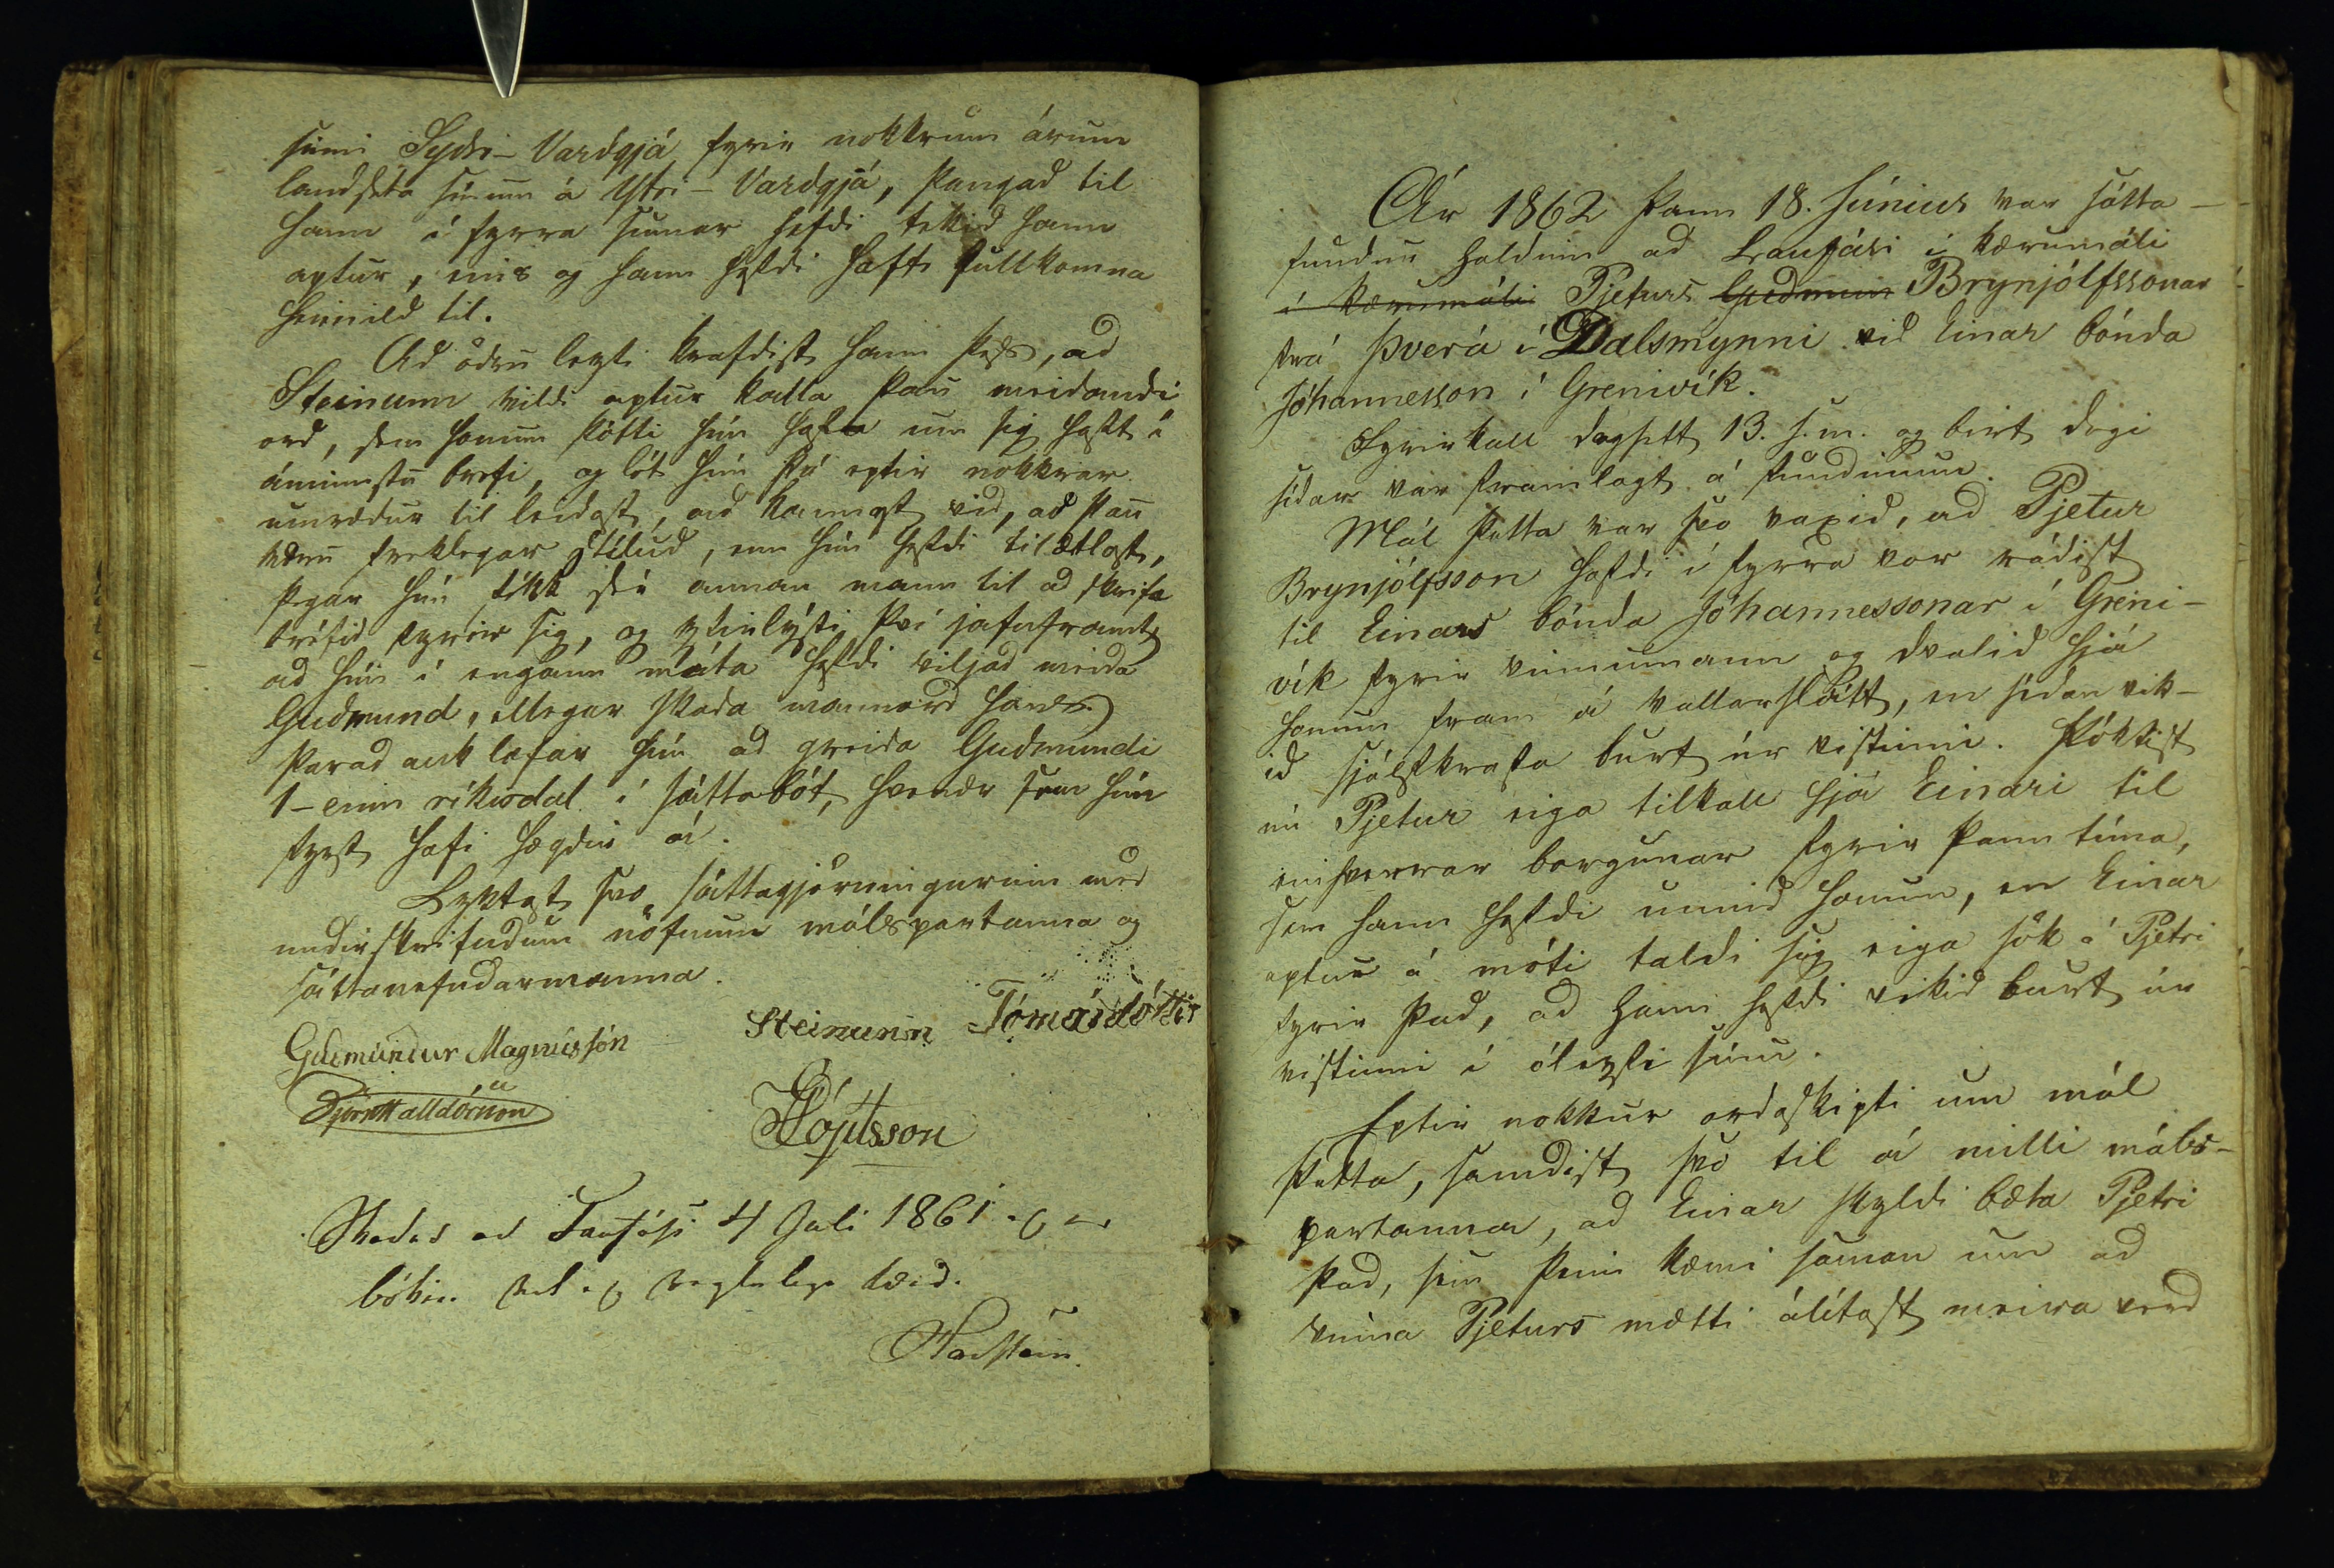 sinni Sydri-Vardgjá fyrir nokkrum árum
landseta sínum á Ytri-Vardgjá, þangad til
hann í fyrra sumar hefdi tekid hann
aptur, eins og hann hefdi haft fullkomna
heimild til.
Ad ödru leyti krafdist hann þess, ad
Steinunn vildi aptur kalla þau meidandi
ord, sem honum þótti hún hafa um sig haft í
áminnstu brefi, og lét hún þá eptir nokkrar
umrædur til leidast, ad kannast vid, ad þau
væru freklegar stílud, enn hún hefdi tilætlast,
þegar hún fékk sér annan mann til ad skrifa
bréfid fyrir sig, og yfirlýsti því jafnframt
ad hún í engann máta hefdi viljad meida
Gudmund, ellegar skada mannord hans.
Þarad auk lofar hún ad greida Gudmundi
1-einn ríkisdal í sáttabót, hvenær sem hún
fyrst hafi hægdir á.
Lyktast svo sáttagjörningurinn med
undirskrifudum nöfnum málspartanna og
sáttanefndarmanna.
Gudmundur Magnússón Steinunn Tómásdóttir
Björn Halldórsson
Skodad ad Laufási 4 Juli 1861 og er
bókin vel og reglulega færd.
Havstein.
Ár 1862 þann 18. Június var sátta-
fundur haldinn ad Laufási í kærumáli
í kærumáli Pjeturs Gudmun Brynjólfssonar
frá Þverá í Dalsmynni vid Einar bónda
Jóhannesson í Grenivík.
Fyrirkall dagsett 13. s.m. og birt degi
sídar var framlagt á fundinum.
Mál þetta var svo vaxid, ad Pjetur
Brynjólfsson hafdi í fyrra vor rádist
til Einars bónda Jóhannessonar í Greni-
vík fyrir vinnumann og dvalid hjá
honum fram á vallarslátt, en sídan vik-
id sjálfkrafa burt úr vistinni. Þóktist
nú Pjetur eiga tilkall hjá Einari til
einhverrar borgunar fyrir þann tíma,
sem hann hefdi unnid honum, en Einar
aptur á móti taldi sig eiga sök á Pjetri
fyrir þad, ad hann hefdi vikid burt úr
vistinni í óleyfi sínu.
Eptir nokkur ordaskipti um mál
þetta, samdist svo til á milli máls-
partanna, ad Einar skyldi bæta Pjetri
þad, sem þeim kæmi saman um ad
vinna Pjeturs mætti álítast meira verd